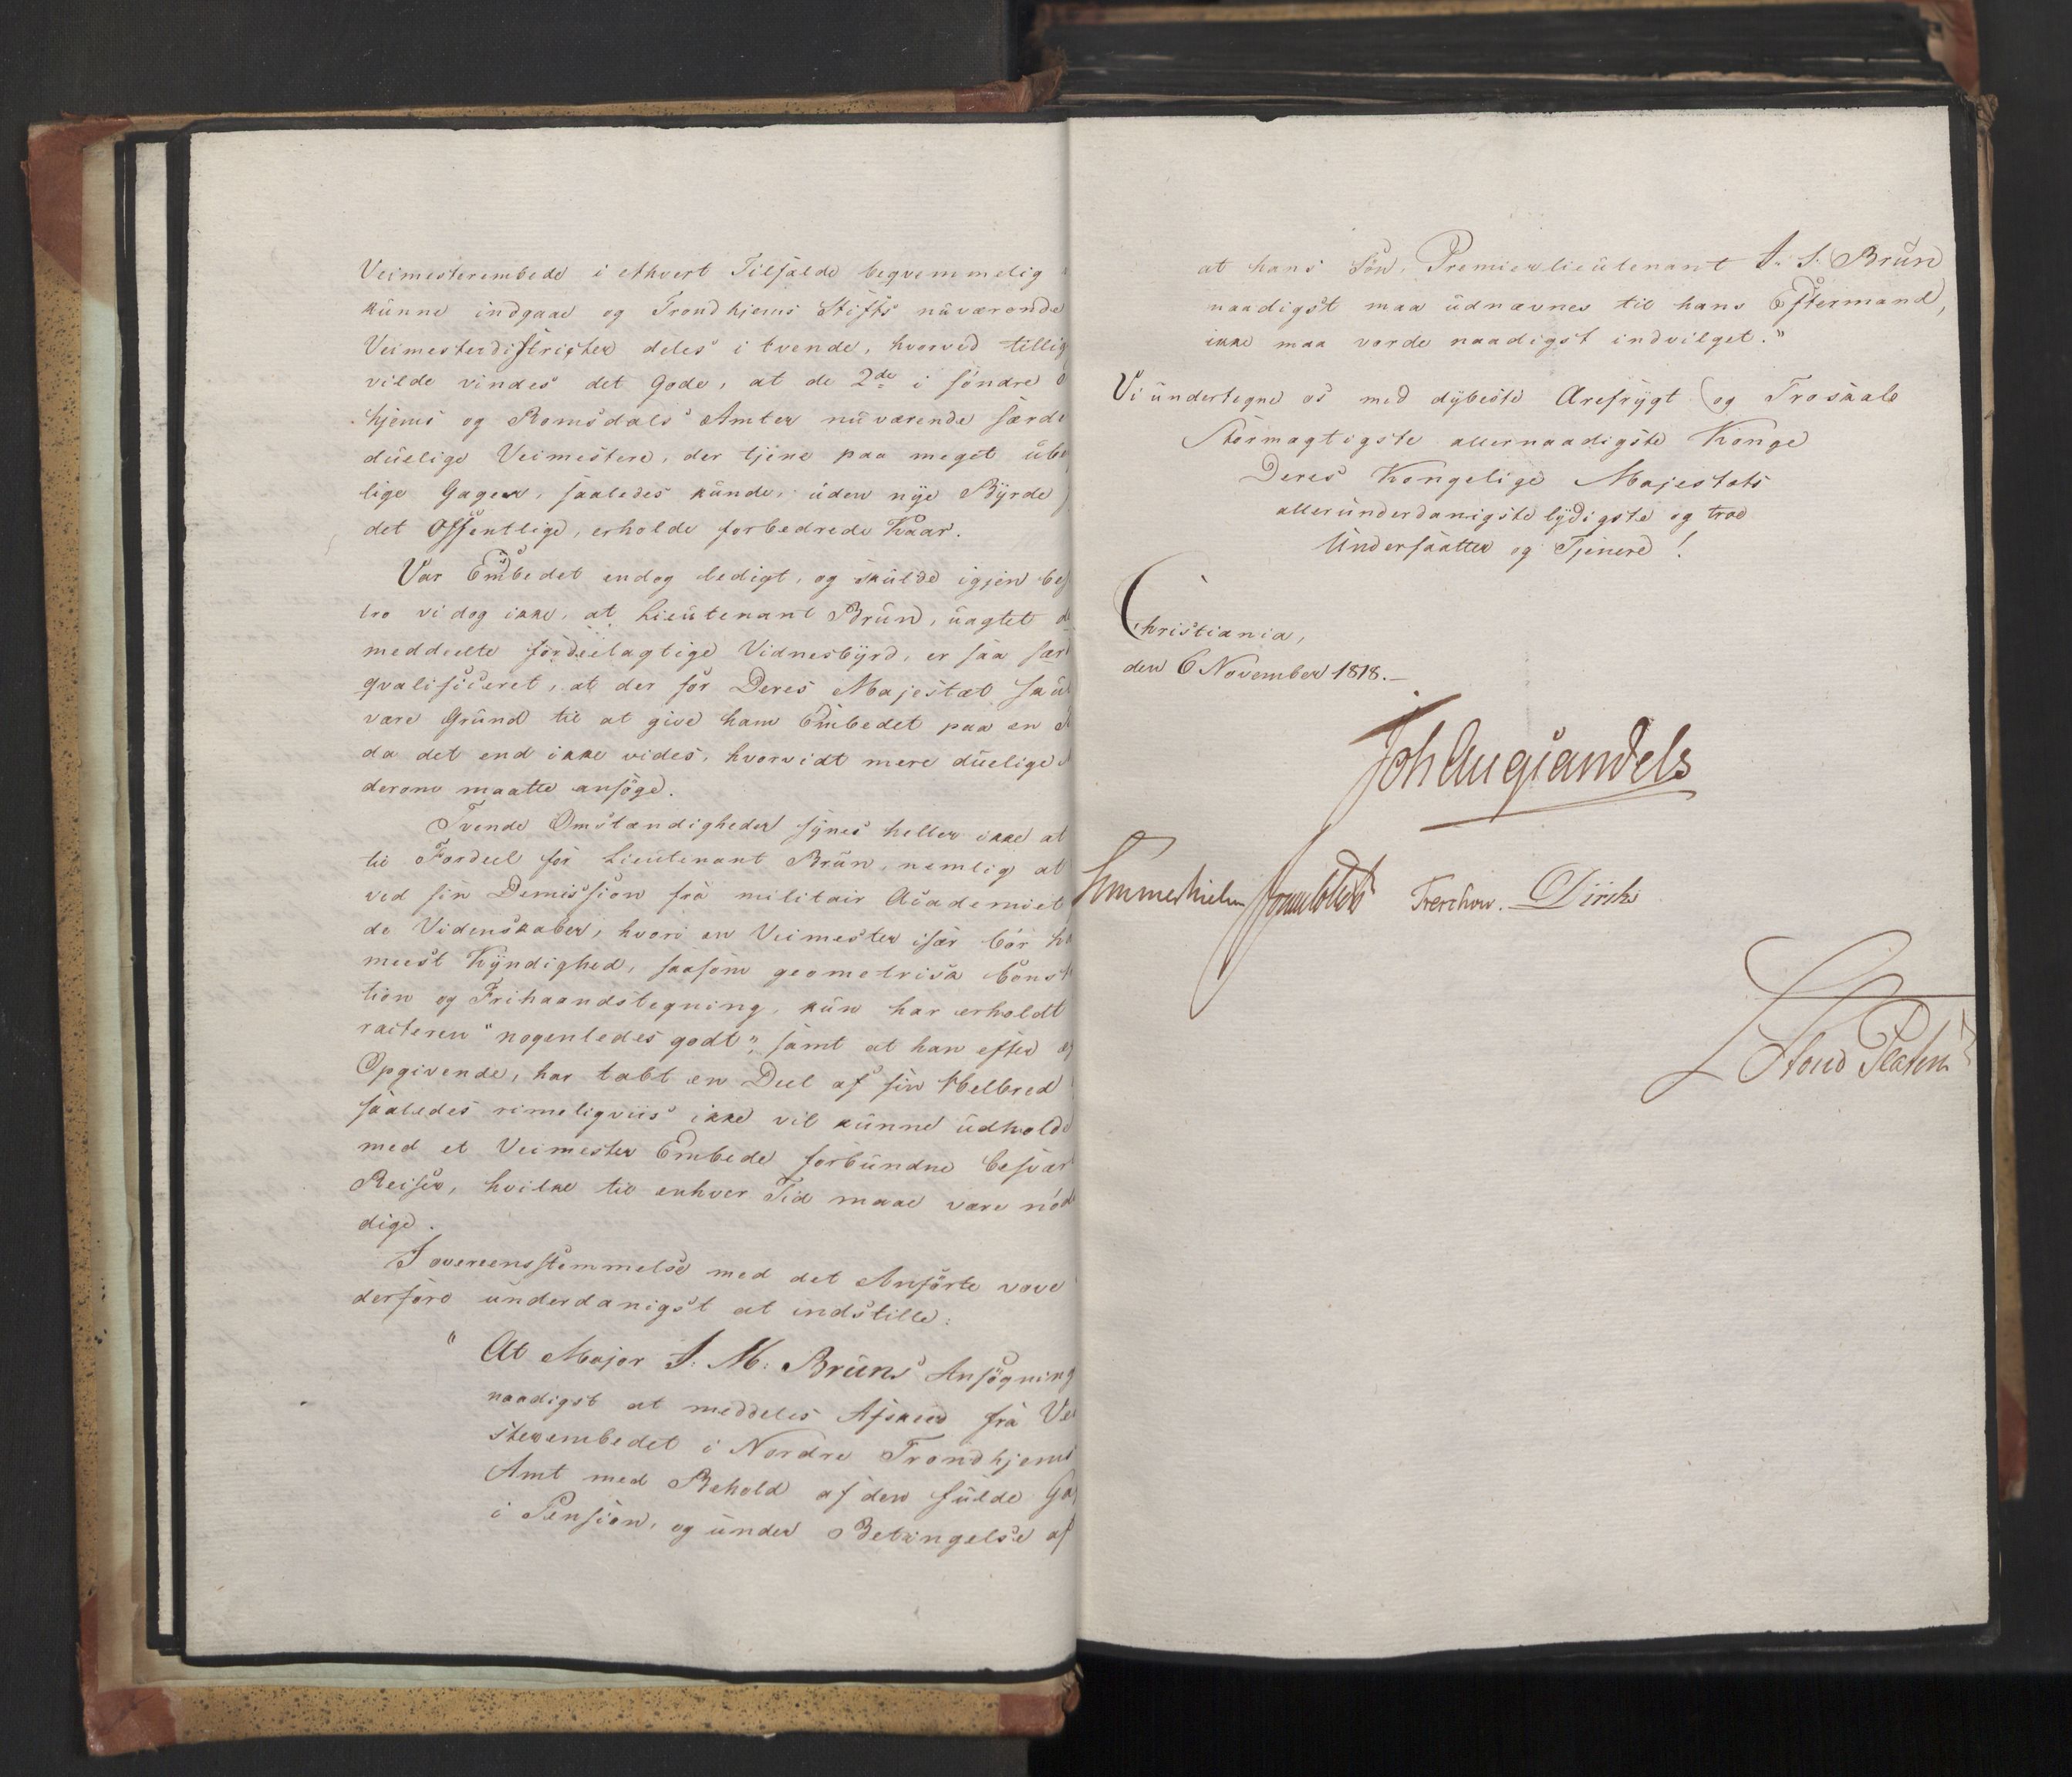 Veimesterembede i ethvert Tilfælde beqvemmelig
kunne indgaae og Trondhjems Stifts nuværende
Veimesterdistricter deles i tvende, hvorved tillig
vilde vindes det Gode, at de 2de i søndre
hjems og Romsdals Amter nuværende særde
duelige Veimestere, der tjene paa meget ube
lige Gager, saaledes kunde, uden nye Byrde
det Offentlige, erholde forbedrede Kaar.
Var Embedet endog ledigt, og skulde igjen bes
troe vi dog ikke, at Lieutenant Brun, uagtet de
meddeelte fordeelagtige Vidnesbyrd, er saa sær
qvalificeret, at der for Deres Majestæt sku
være Grund til at give ham Embedet paa en
da det end ikke vides, hvorvidt mere duelige
derom maatte ansøge.
Tvende Omstændigheder synes heller ikke at
til Fordeel for Lieutenant Brun, nemlig at
ved sin Demission fra militair Academiet
de Videnskaber, hvori en Veimester især bør ha
meest Kyndighed, saasom geometrisk Const
tion og Frihaandstegning, kun har erholdt
racteren "nogenledes godt", samt at han efter eg
Opgivende, har tabt en Deel af sin Helbred
saaledes rimeligviis ikke vil kunne udholde
med et Veimester Embede forbundne besvær
Reiser, hvilke til enhver Tid maae være nød
dige.
I overeensstemmelse med det Anførte vove
derfore underdanigst at indstille:
"At Major J: M: Bruns Ansøgning
naadigst at meddeles Afskeed fra Vei
sterembedet i Nordre Trondhjems
Amt med Behold af den fulde Ga
i Pension, og under Betingelse af
at hans Søn, Premierlieutenant J. S. Brun
naadigst maa udnævnes til hans Eftermand,
ikke maa vorde naadigst indvilget."
Vi undertegne os med dybeste Ærefrygt og Troskab
Stormægtigste allernaadigste Konge
Deres Kongelige Majestæts
allerunderdanigste lydigste og troe
Undersaatter og Tjenere!
Christiania,
den 6 November 1818.-
Joh Aug Sandels
Sommerhielm Treschow. Diriks